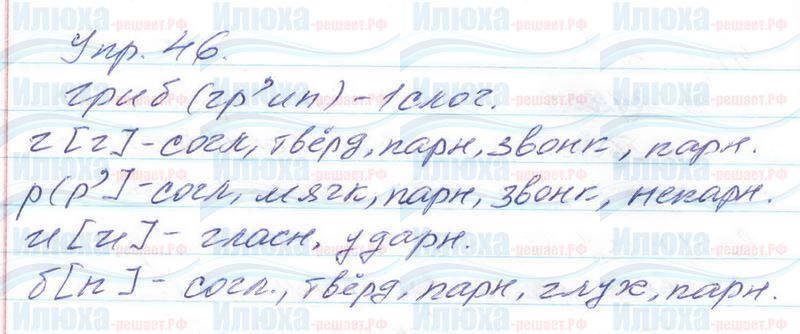 Упр. 46.
гриб (гр'ип) - 1 слог.
г [г] - согл, твёрд, парн, звонк, парн.
р (р'] - согл, мягк, парн, звонк, непарн.
и [и] - гласн, ударн.
б [п] - согл., твёрд, парн, глух, парн.
Илюха-решает.РФ